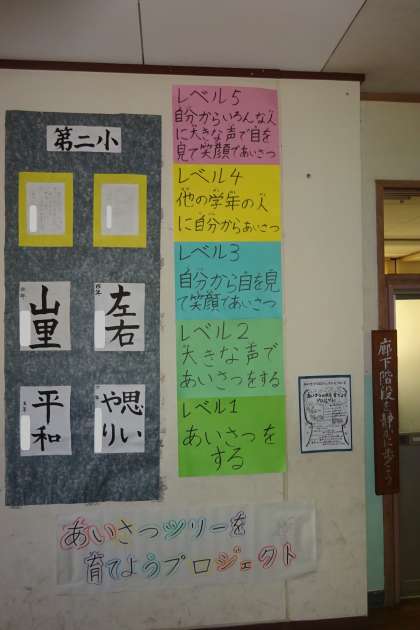 第二小
山里
左右
平和
思いやり
レベル5
自分からいろんな人
に大きな声で目を
見て笑顔であいさつ
レベル4
他の学年の人
に自分からあいさつ
レベル3
自分から目を見
て笑顔であいさつ
レベル2
大きな声で
あいさつをする
レベル1
あいさつを
する
廊下階段を静かに歩こう
あいさつツリーを
育てようプロジェクト